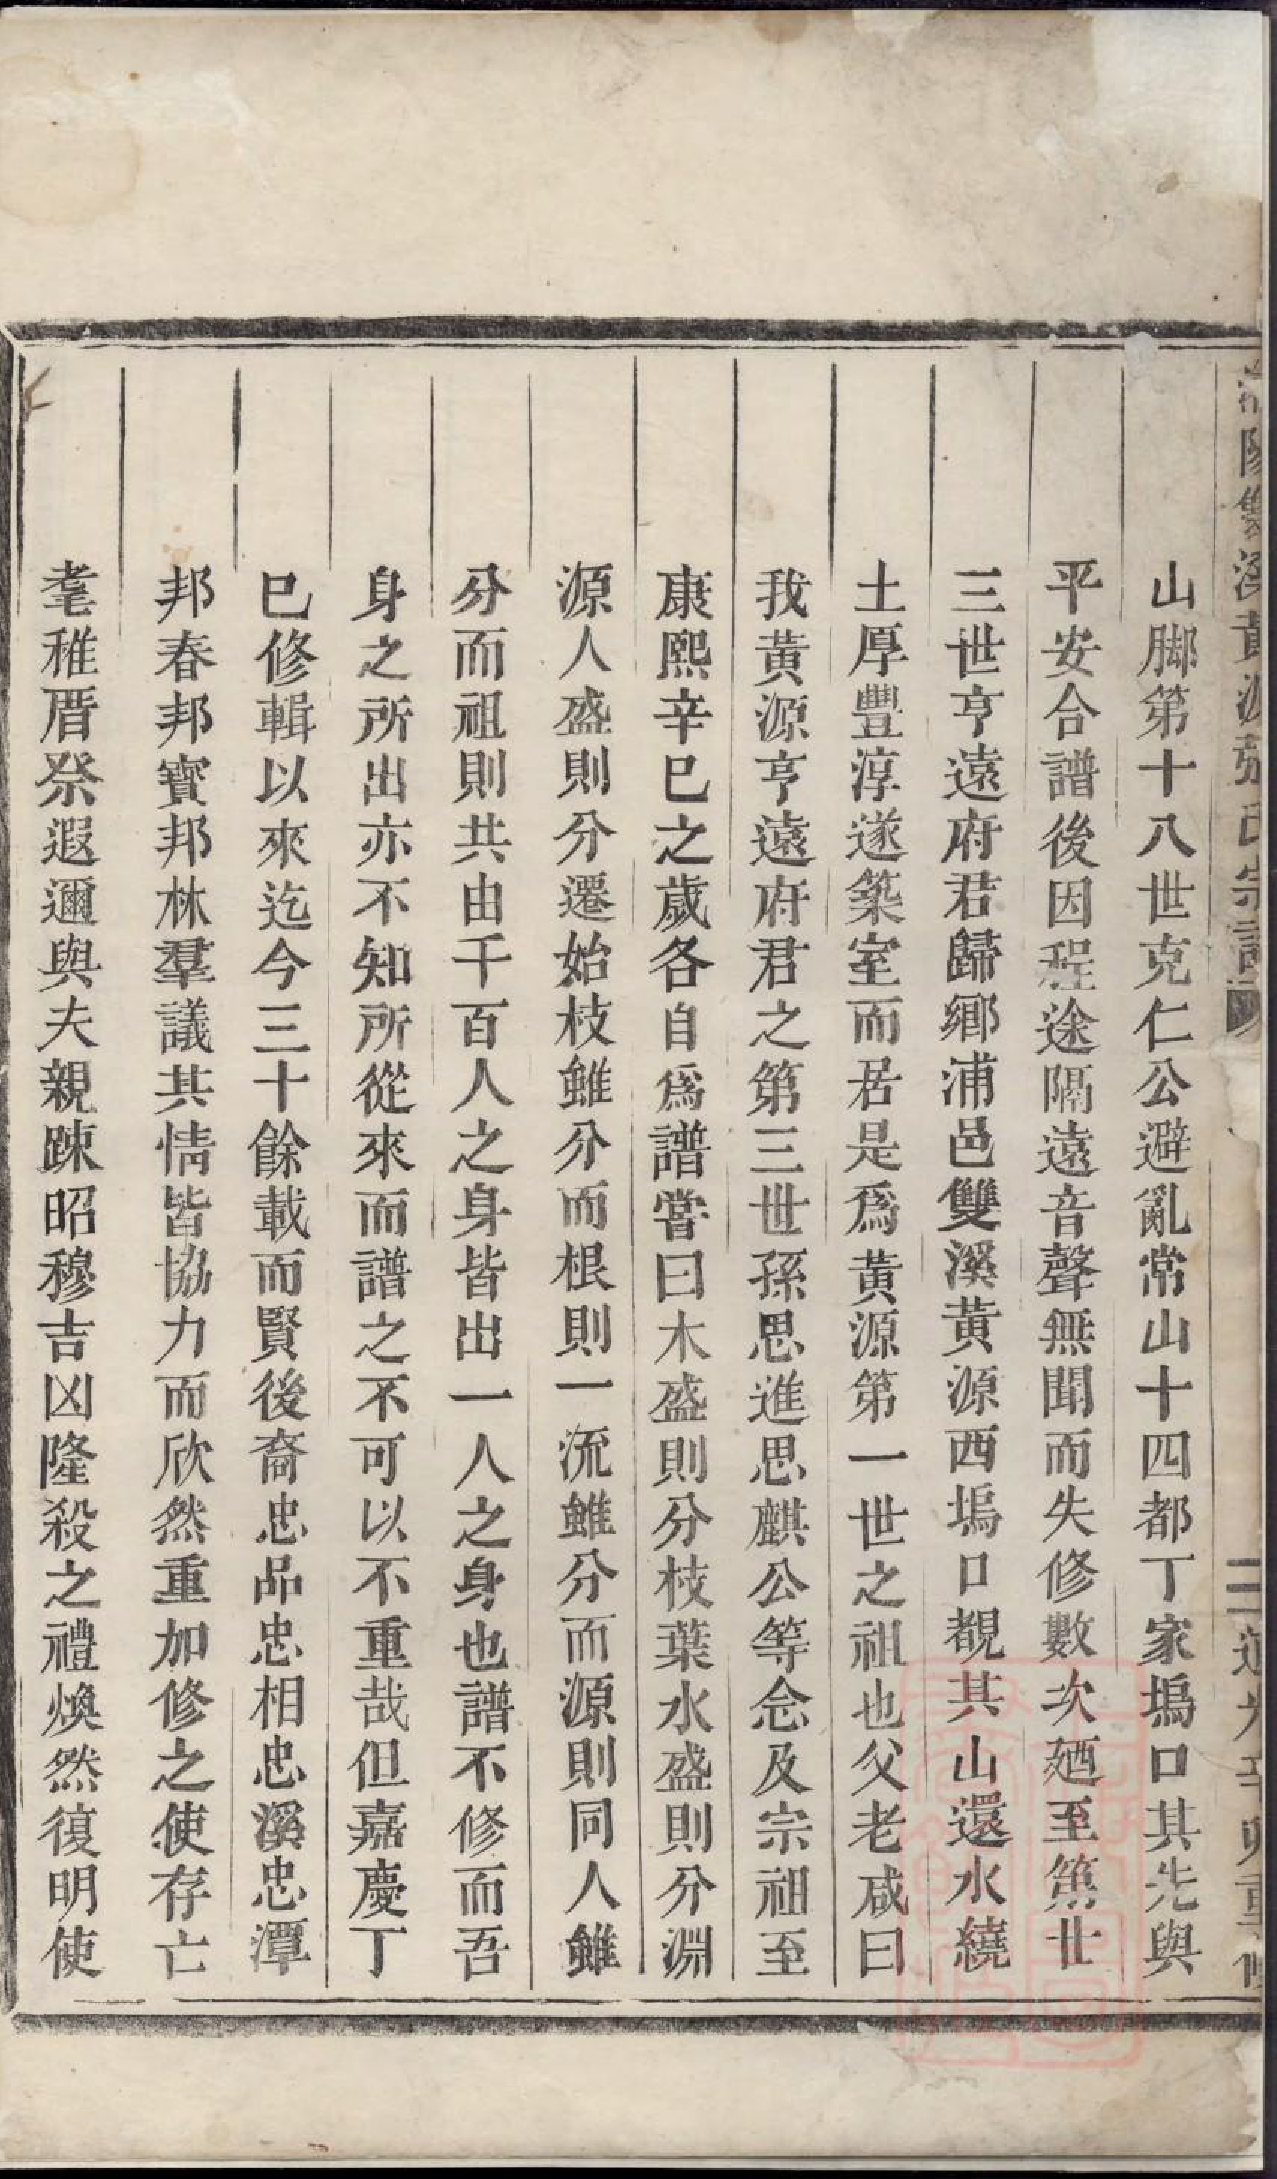 山脚第十八世克仁公避亂常山十四都丁家塢口其先與
平安合譜後因程途隔遠音聲無聞而失修數次廼至第廿
三世亨遠府君歸鄉浦邑雙溪黃源西塢口覩其山還水繞
土厚豐淳遂築室而居是爲黃源第一世之祖也父老咸曰
我黃源亨遠府君之第三世孫思進思麒公等念及宗祖至
康熙辛巳之歲各自爲譜嘗曰木盛則分枝葉水盛則分淵
源人盛則分遷始枝雖分而根則一流雖分而源則同人雖
分而祖則共由千百人之身皆出一人之身也譜不修而吾
身之所出亦不知所從來而譜之不可以不重哉但嘉慶丁
巳修輯以來迄今三十餘載而賢後裔忠品忠相忠溪忠潭
邦春邦寶邦林羣議其情皆協力而欣然重加修之使存亡
耄稚厝祭遐邇與夫親踈昭穆吉凶隆殺之禮煥然復明使
陽雙溪黃源張氏宗譜
道光辛卯重修